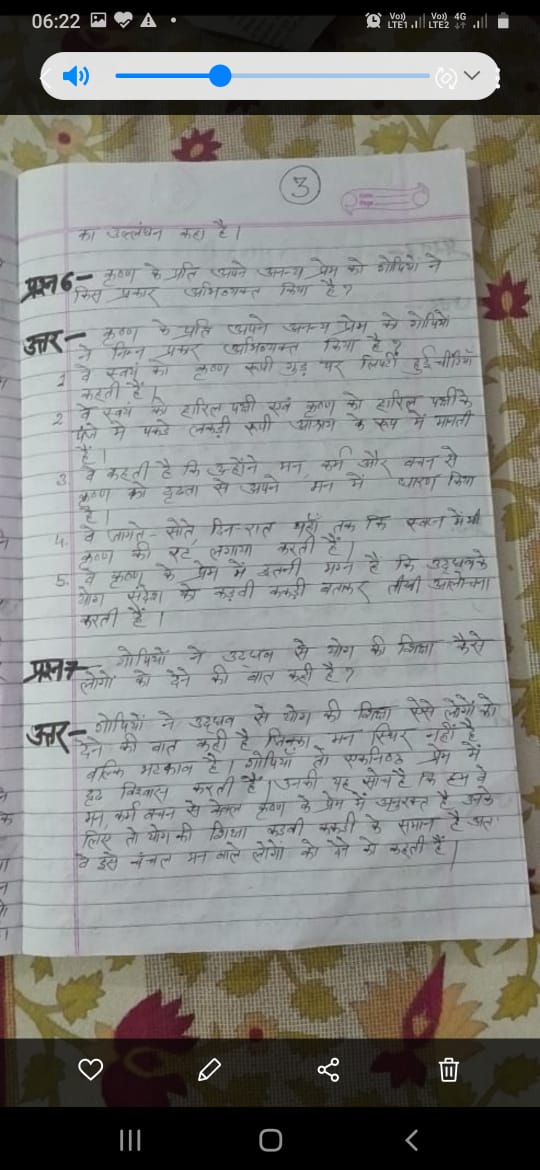 06:22
Vo) LTE1 Vo) LTE2 4G
3
का उल्लंघन कहा है।
प्रश्न 6 - कृष्ण के प्रति अपने अनन्य प्रेम को गोपियों ने
किस प्रकार अभिव्यक्त किया है?
उत्तर - कृष्ण के प्रति अपने अनन्य प्रेम को गोपियों
ने निम्न प्रकार अभिव्यक्त किया है?
1 वे स्वयं को कृष्ण रूपी गुड़ पर लिपटी हुई चींटियाँ
कहती हैं।
2 वे स्वयं को हारिल पक्षी एवं कृष्ण को हारिल पक्षी के
पंजे में पकड़े लकड़ी रूपी आश्रय के रूप में मानती
हैं।
3. वे कहती है कि उन्होंने मन, कर्म और वचन से
कृष्ण को दृढ़ता से अपने मन में धारण किया
है।
4. वे जागते-सोते, दिन-रात यहाँ तक कि स्वप्न में भी
कृष्ण की रट लगाया करती हैं।
5. वे कृष्ण के प्रेम में इतनी मग्न हैं कि उद्धव के
योग संदेश को कड़वी ककड़ी बताकर तीखी आलोचना
करती हैं।
प्रश्न 7 - गोपियों ने उद्धव से योग की शिक्षा कैसे
लोगों को देने की बात कही है?
उत्तर - गोपियों ने उद्धव से योग की शिक्षा ऐसे लोगों को
देने की बात कही है जिनका मन स्थिर नहीं है
बल्कि भटकाव है। गोपियाँ तो एकनिष्ठ प्रेम में
दृढ़ विश्वास करती हैं। उनकी यह सोच है कि हम वे
मन, कर्म वचन से केवल कृष्ण के प्रेम में अनुरक्त है उनके
लिए तो योग की शिक्षा कड़वी ककड़ी के समान है अतः
वे इसे चंचल मन वाले लोगों को देने को कहती हैं।